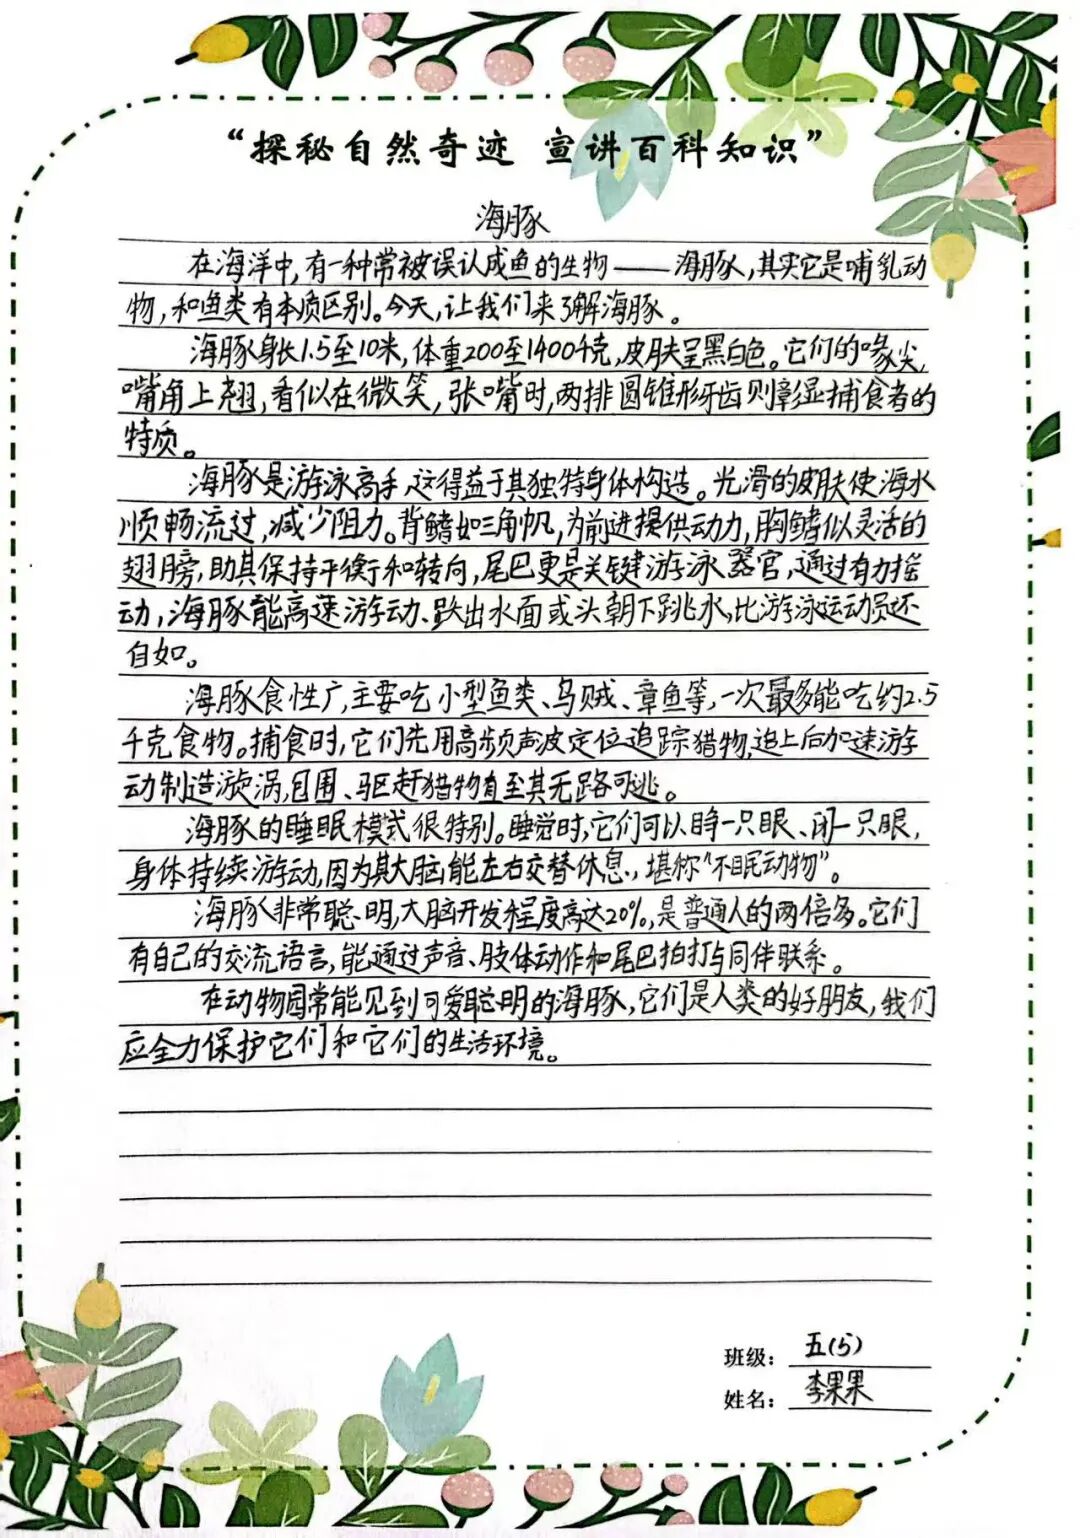 “探秘自然奇迹 宣讲百科知识”
海豚
在海洋中,有一种常被误认成鱼的生物——海豚,其实它是哺乳动
物,和鱼类有本质区别。今天,让我们来了解海豚。
海豚身长1.5至10米,体重200至1400千克,皮肤呈黑白色。它们的喙尖,
嘴角上翘,看似在微笑,张嘴时,两排圆锥形牙齿则彰显捕食者的
特质。
海豚是游泳高手,这得益于其独特身体构造。光滑的皮肤使海水
顺畅流过,减少阻力。背鳍如三角帆,为前进提供动力,胸鳍似灵活的
翅膀,助其保持平衡和转向,尾巴更是关键游泳器官,通过有力摇
动,海豚能高速游动、跃出水面或头朝下跳水,比游泳运动员还
自如。
海豚食性广,主要吃小型鱼类、乌贼、章鱼等,一次最多能吃约2.5
千克食物。捕食时,它们先用高频声波定位追踪猎物,追上后加速游
动制造漩涡,包围、驱赶猎物直至其无路可逃。
海豚的睡眠模式很特别。睡觉时,它们可以睁一只眼、闭一只眼,
身体持续游动,因为其大脑能左右交替休息,堪称“不眠动物”。
海豚非常聪明,大脑开发程度高达20%,是普通人的两倍多。它们
有自己的交流语言,能通过声音、肢体动作和尾巴拍打与同伴联系。
在动物园常能见到可爱聪明的海豚,它们是人类的好朋友,我们
应全力保护它们和它们的生活环境。
班级: 五(5)
姓名: 李果果